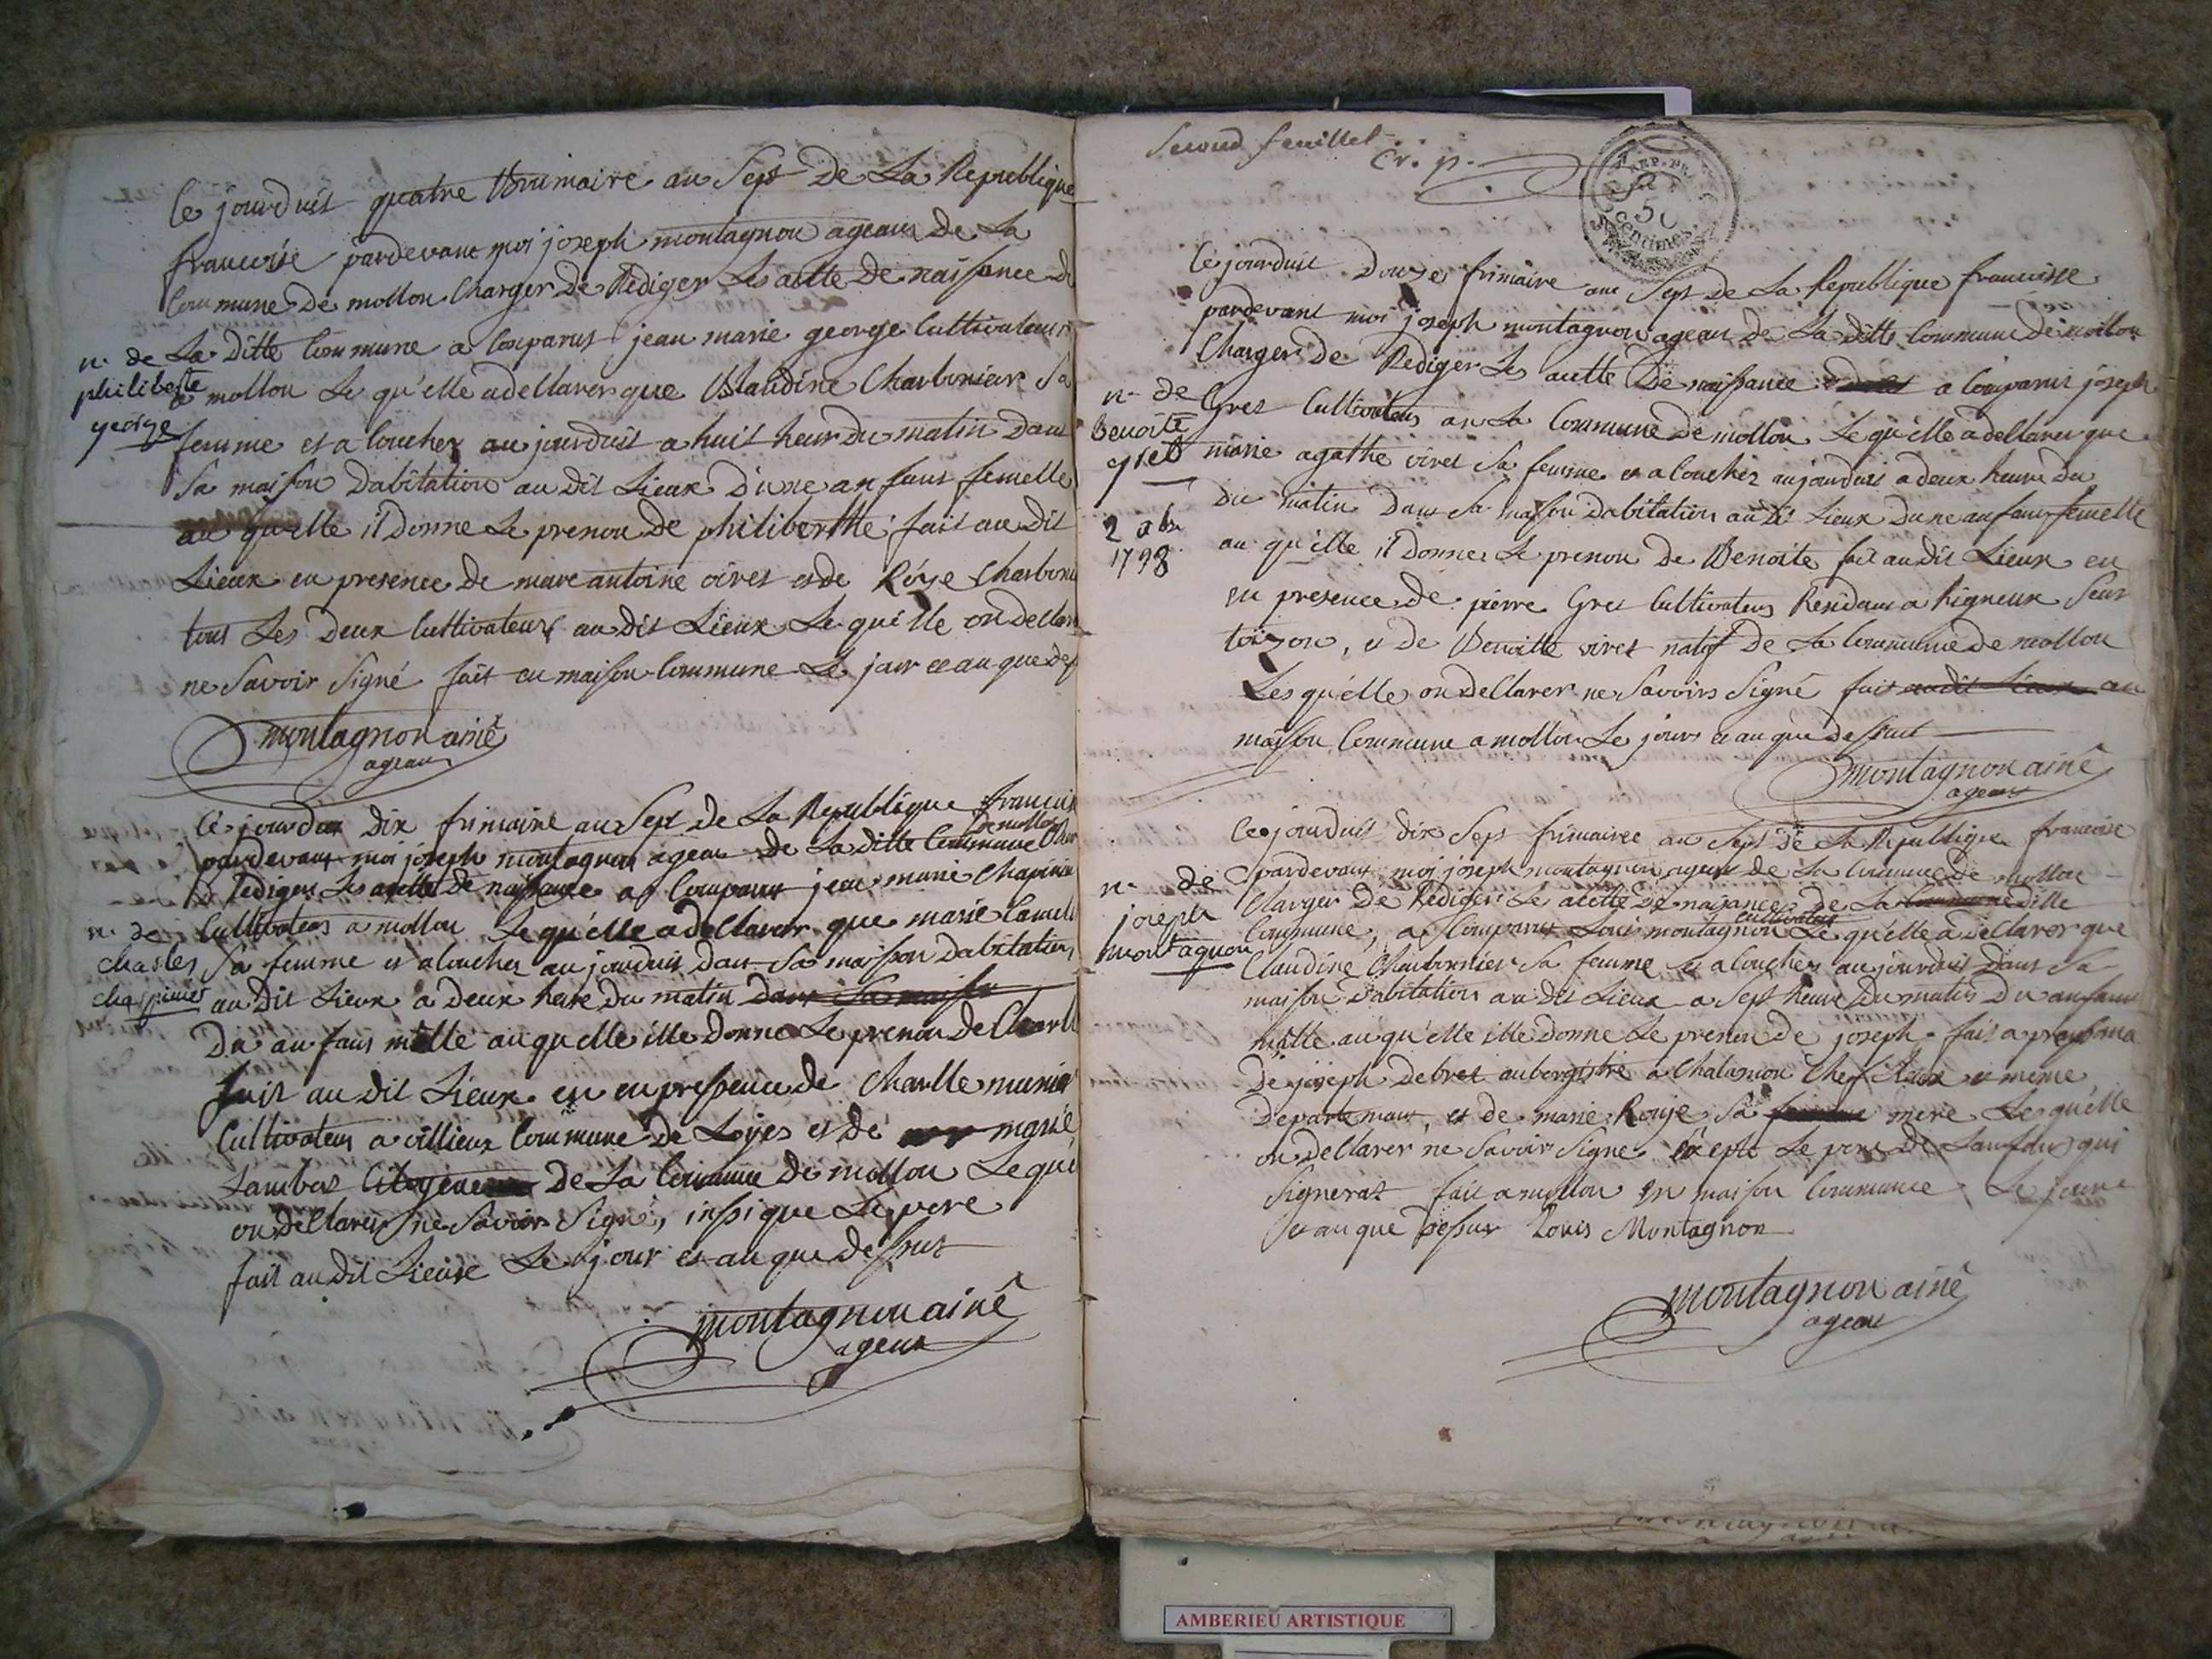 Ce jourduit quatre Brumaire an Sept De La Republique
francoise pardevant moi joseph montagnon ageans De La
Commune De mollon Charger De Rediger Les actte De naissance de
n. de
philiberte
george
La Ditte Commune a Comparus jean marie george Cultivateur
a mollon Le qu'elle adellarer que Claudine Charbonier Sa
femme et a loucher au jourduit a huit heur Du matin Dans
Sa maison Dabitation au Dit Lieux D'une anfans femelle
au quelle il Donne Le prenon De philiberthe fait au Dit
Lieux en presence de marc antoine viret et de Roye Charboni
tous Les Deux Cultivateurs au Dit Lieux Le qu'elle on Dellar
ne Savoir Signé fait en maison Commune Le jour et an que des
montagnon ainé
agean
Ce jourdui Dix frimaire an Sept De La Republique francois
pardevant moi joseph montagnon agean De La ditte Commune De mollon Char
Rediger Les actte De naissance a Comparus jean marie Chapinier
n. de
Charles
chappinier
Cultivateur a mollon Le qu'elle adellarer que marie
Sa femme et a loucher au jourduit Dans Sa maison Dabitation
au Dit Lieux a Deux heure Du matin Dans Sa maison
Du anfans malle au quelle ille Donne Le prenon De Charl
fait au Dit Lieux en en pressence de Charlle munier
Cultivateur a villieux Commune De Loyes et De marie
Lambert Citoyene De La Commune De mollon Le que
on Dellarer ne Savoir Signé, inssi que Le pere
fait au Dit Lieux Le jour et an que Dessus
montagnon ainé
agean
Second feuillet
Cr. p.
50
Centimes
Ce jourduit Douze frimaire ane Sept De La Republique francoisse
pardevant moi joseph montagnon agean De La Ditte Commune De mollon
Charger De Rediger Les actte De naissance a Comparus joseph
n. de
Benoite
gret
2 xbr
1798
Gret Cultivateur an La Commune De mollon Le qu'elle adellarer que
marie agathe viret Sa femme et a loucher aujourduit a deux heure Du
Du matin Dans Sa maison Dabitation au Dit Lieux Dune anfans femelle
au qu'elle il Donne Le prenon De Benoite fait au Dit Lieux en
en presence De pierre Gret Cultivateur Residans a Rigneux Seur
toizon, et De Benoitte viret natif De La Commune De mollon
Les qu'elle on Dellarer ne Savoirs Signé fait au dit Lieux an
maison Commune a mollon Le jours et an que Dessus
montagnon ainé
agean
Ce jourduit dix Sept frimairee an Sept De La Republique francoise
pardevant moi joseph montagnon agean De La Commune De mollon
n. de
joseph
montagnon
Charger De Rediger Le actte De naisance De La Commune Ditte
Commune, a Comparus Loui montagnon cultivateur Le qu'elle a Dellarer que
Claudine Charbornier Sa femme et a loucher au jourduit Dans Sa
maison Dabitation au dit Lieux a Sept heure Du matin Du anfans
malle au qu'elle ille Donne Le prenon De joseph fait a presance
De joseph Debret aubergitre a Chalamon Chef Lieux et meme
Departemant, et de marie Rouje Sa femme mere Les qu'elle
on Dellarer ne Savoir Signé exepté Le pere De Lanfans qui
Signerat fait a mollon en maison Commune Le joure
et an que Dessus Louis Montagnon
montagnon ainé
agean
AMBERIEU ARTISTIQUE